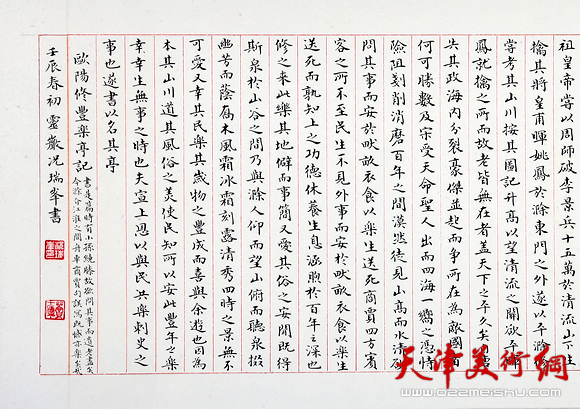 祖皇帝嘗以周師破李景兵十五萬於清流山下生
擒其將皇甫暉姚鳳於滁東門之外遂以平滁
嘗考其山川按其圖記升高以望清流之關欲求
鳳就擒之所而故老皆無在者蓋天下之平久矣
失其政海內分裂豪傑並起而爭所在為敵國
何可勝數及宋受天命聖人出而四海一嚮之憑恃
險阻剗削消磨百年之間漠然徒見山高而水清欲
問其事而安於畎畝衣食以樂生送死商賈四方賓
客之所不至民生不見外事而安於畎畝衣食以樂生
送死而孰知上之功德休養生息涵煦於百年之深也
修之来此樂其地僻而事簡又愛其俗之安閒既得
斯泉於山谷之間乃與滁人仰而望山俯而聽泉掇
幽芳而蔭喬木風霜冰雪刻露清秀四時之景無不
可愛又幸其民樂其歲物之豐成而喜與余遊也因為
本其山川道其風俗之美使民知所以安此豐年之樂
幸幸生無事之時也夫宣上恩以與民共樂刺史之
事也遂書以名其亭
歐陽修豐樂亭記
書是篇時有小孫繞膝故欲問其事而遺老盡矣
今滁介江淮之間舟車商賈句誤寫既憾亦樂矣哉
壬辰春初 靈巖況瑞峯書
天津美術網
www.022meishu.com